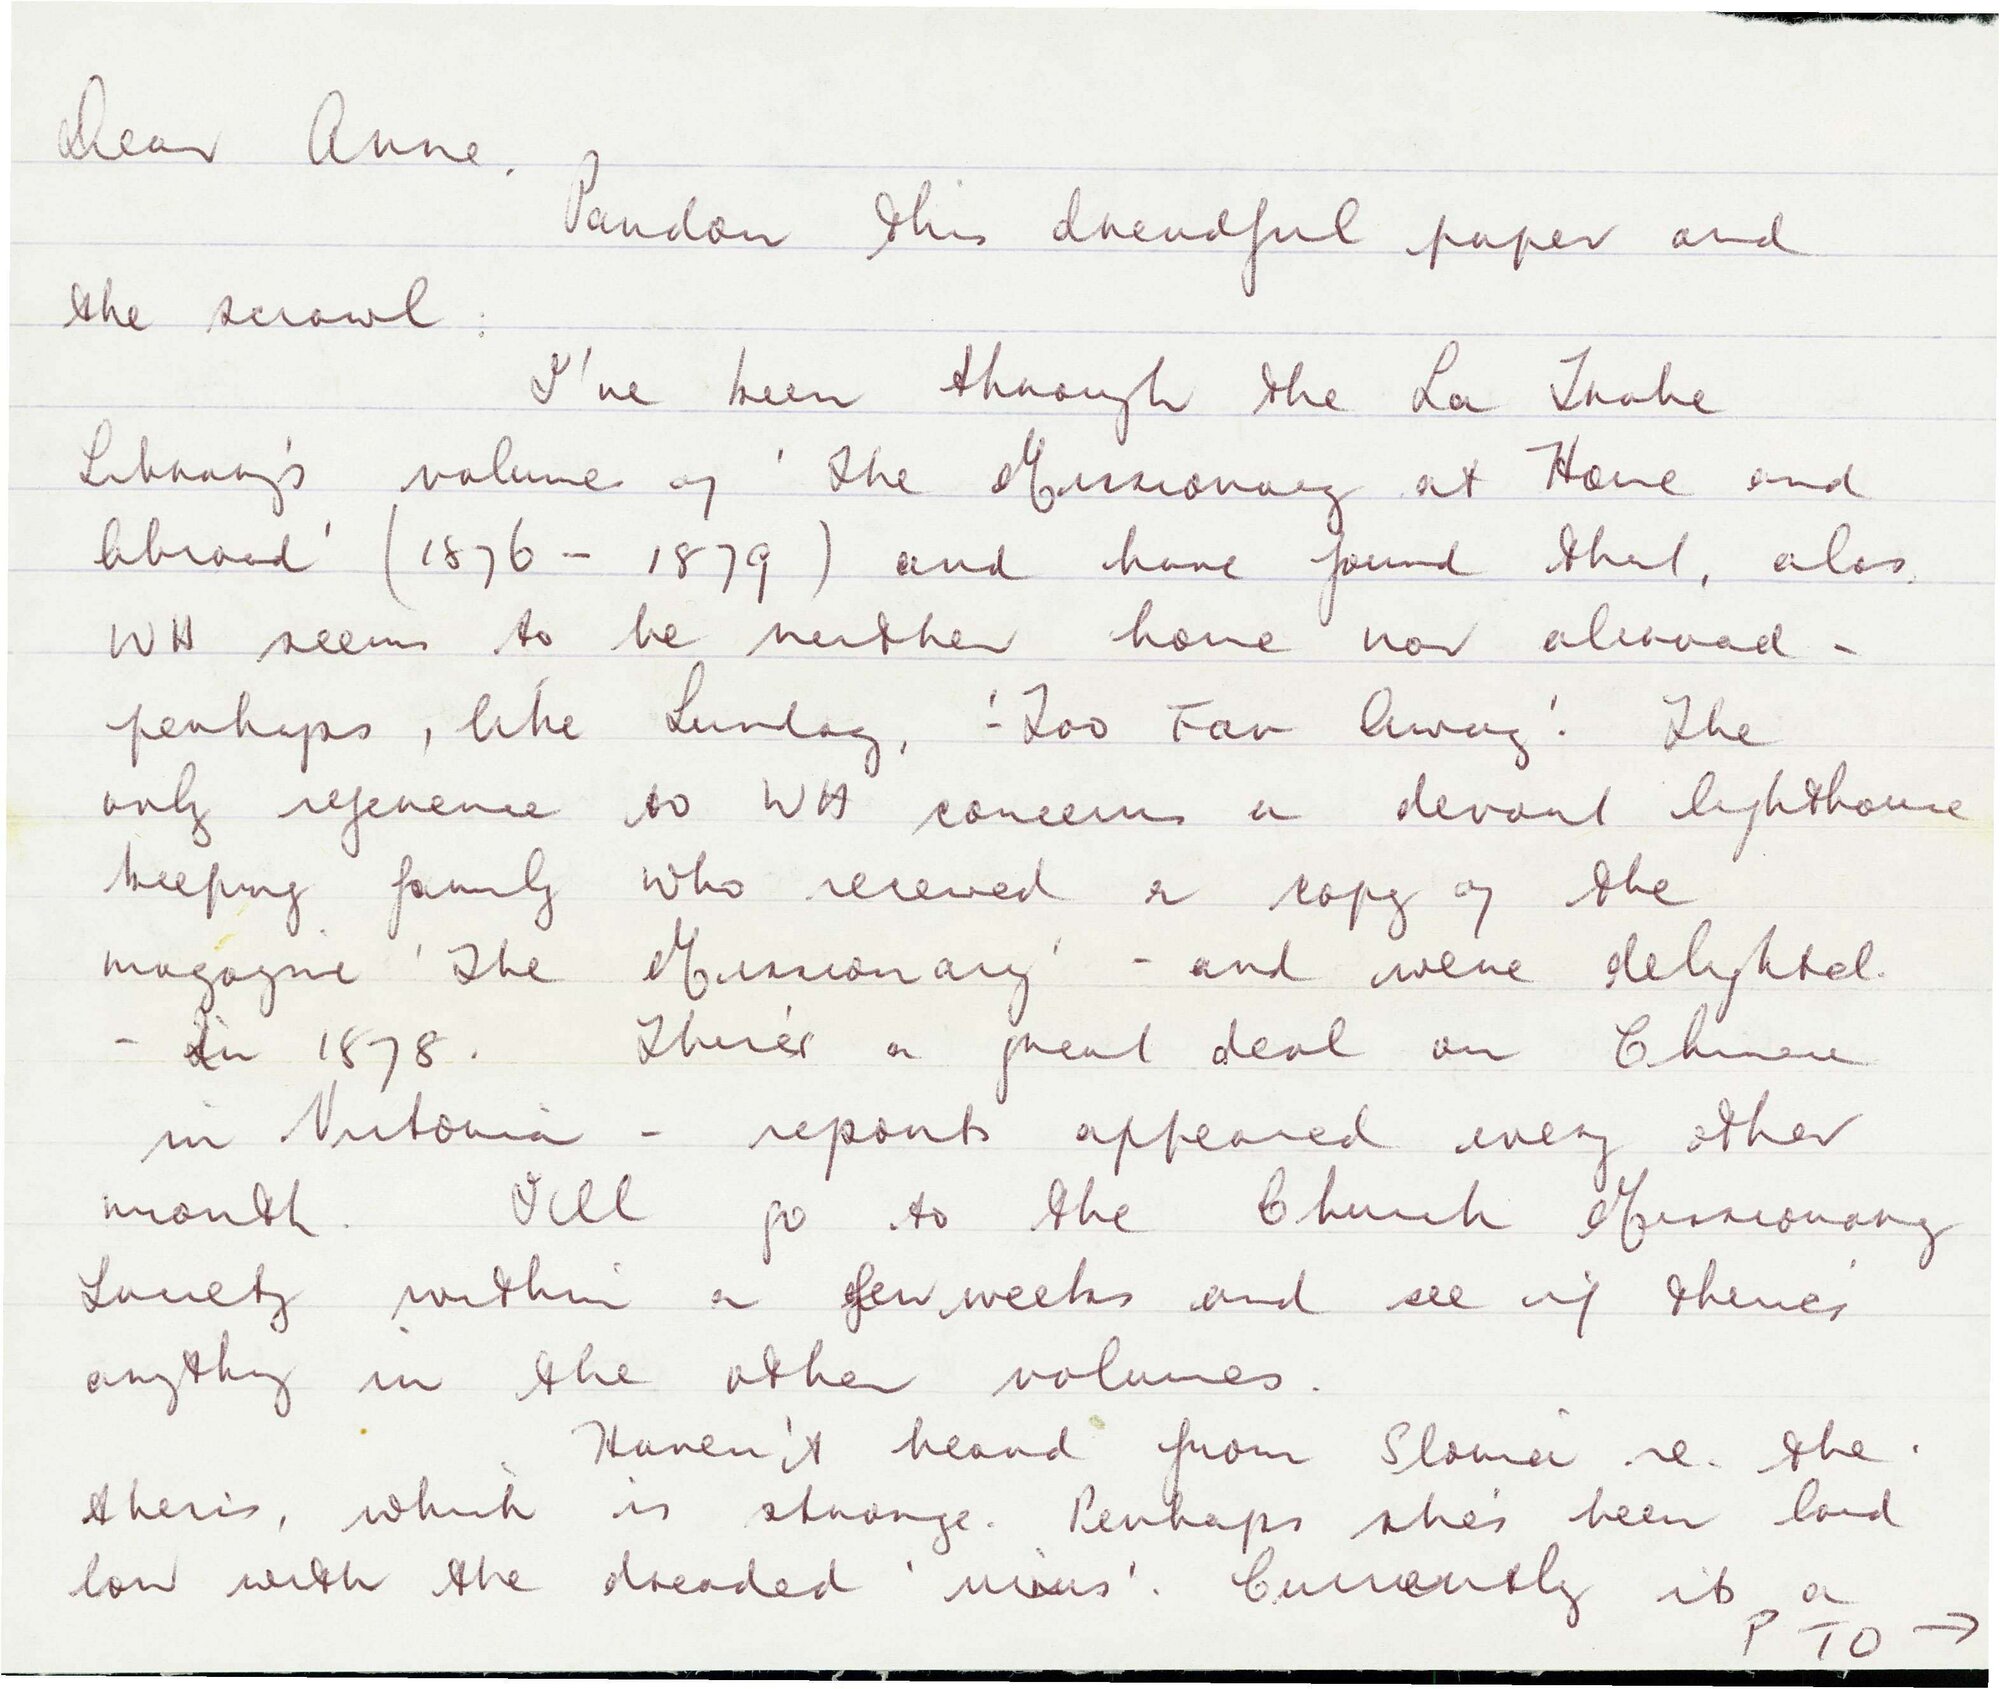 Dear Anne,
Pardon this dreadful paper and
the scrawl:
I've been through the La Trobe
Library's volumes of 'The Missionary at Home and
Abroad' (1876 - 1879) and have found that, alas,
WH seems to be neither home nor abroad -
perhaps, like Sunday, '-Too Far Away'. The
only reference to WH concerns a devout lighthouse
keeping family who received a copy of the
magazine 'The Missionary' - and were delighted.
- in 1878. There's a great deal on Chinese
in Victoria - reports appeared every other
month. I'll go to the Church Missionary
Society within a few weeks and see if there's
anything in the other volumes.
Haven't heard from re. the
thesis, which is strange. Perhaps she's been laid
low with the dreaded 'virus'. Currently it's a
PTO →